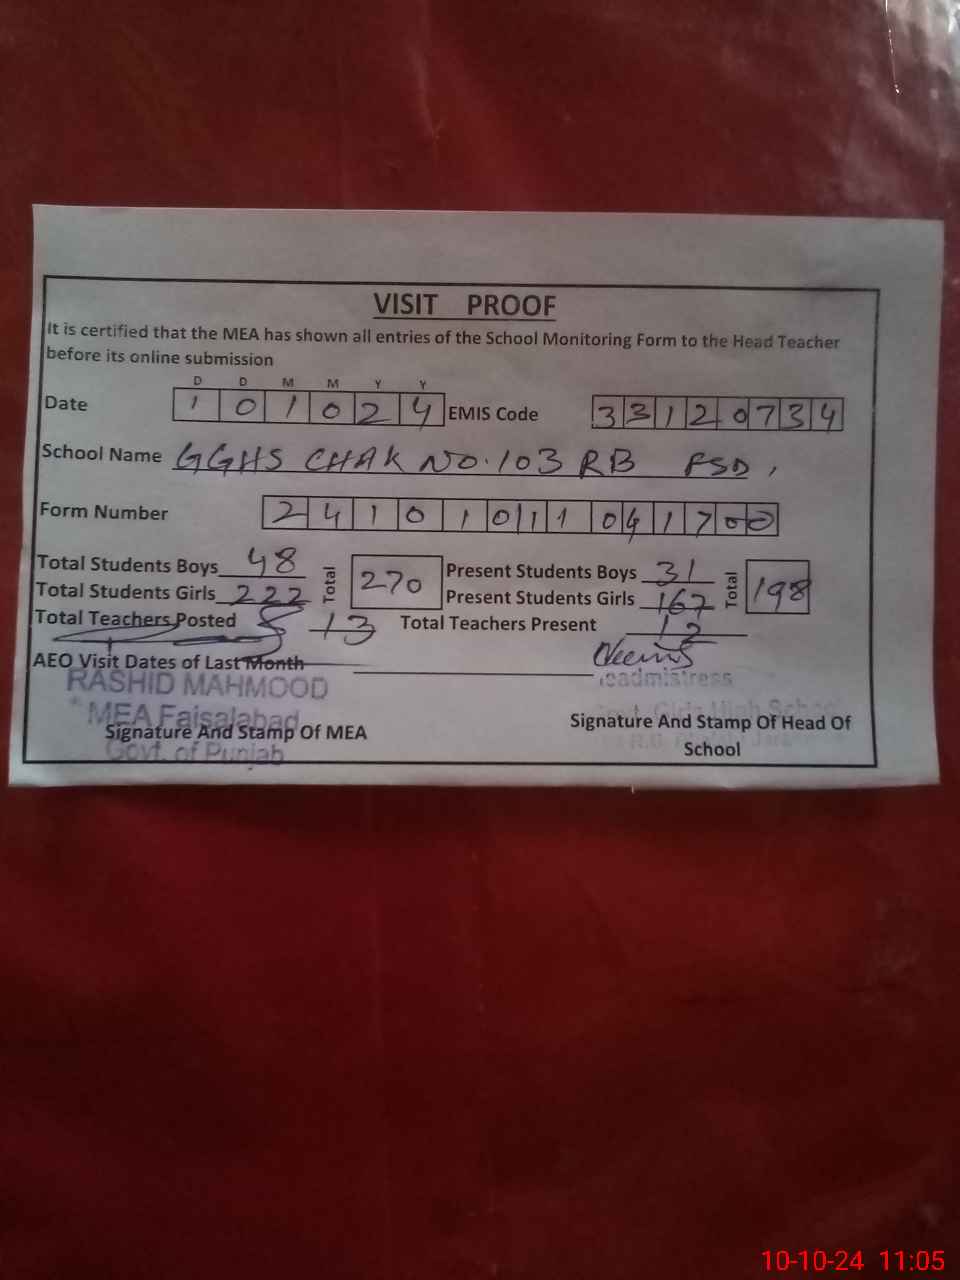 VISIT PROOF
It is certified that the MEA has shown all entries of the School Monitoring Form to the Head Teacher
before its online submission
D D M M Y Y
Date 1 0 1 0 2 4 EMIS Code 3 3 1 2 0 7 3 4
School Name GGHS CHAK NO. 103 RB FSD,
Form Number 2 4 1 0 1 0 1 1 0 4 1 7 0 0
Total Students Boys 48 Total 270 Present Students Boys 31 Total 198
Total Students Girls 222 Present Students Girls 167
Total Teachers Posted 13 Total Teachers Present 12
AEO Visit Dates of Last Month
RASHID MAHMOOD
MEA Faisalabad
Govt. of Punjab
Signature And Stamp Of MEA
eadmistress
Girls High School
Signature And Stamp Of Head Of
School
10-10-24 11:05